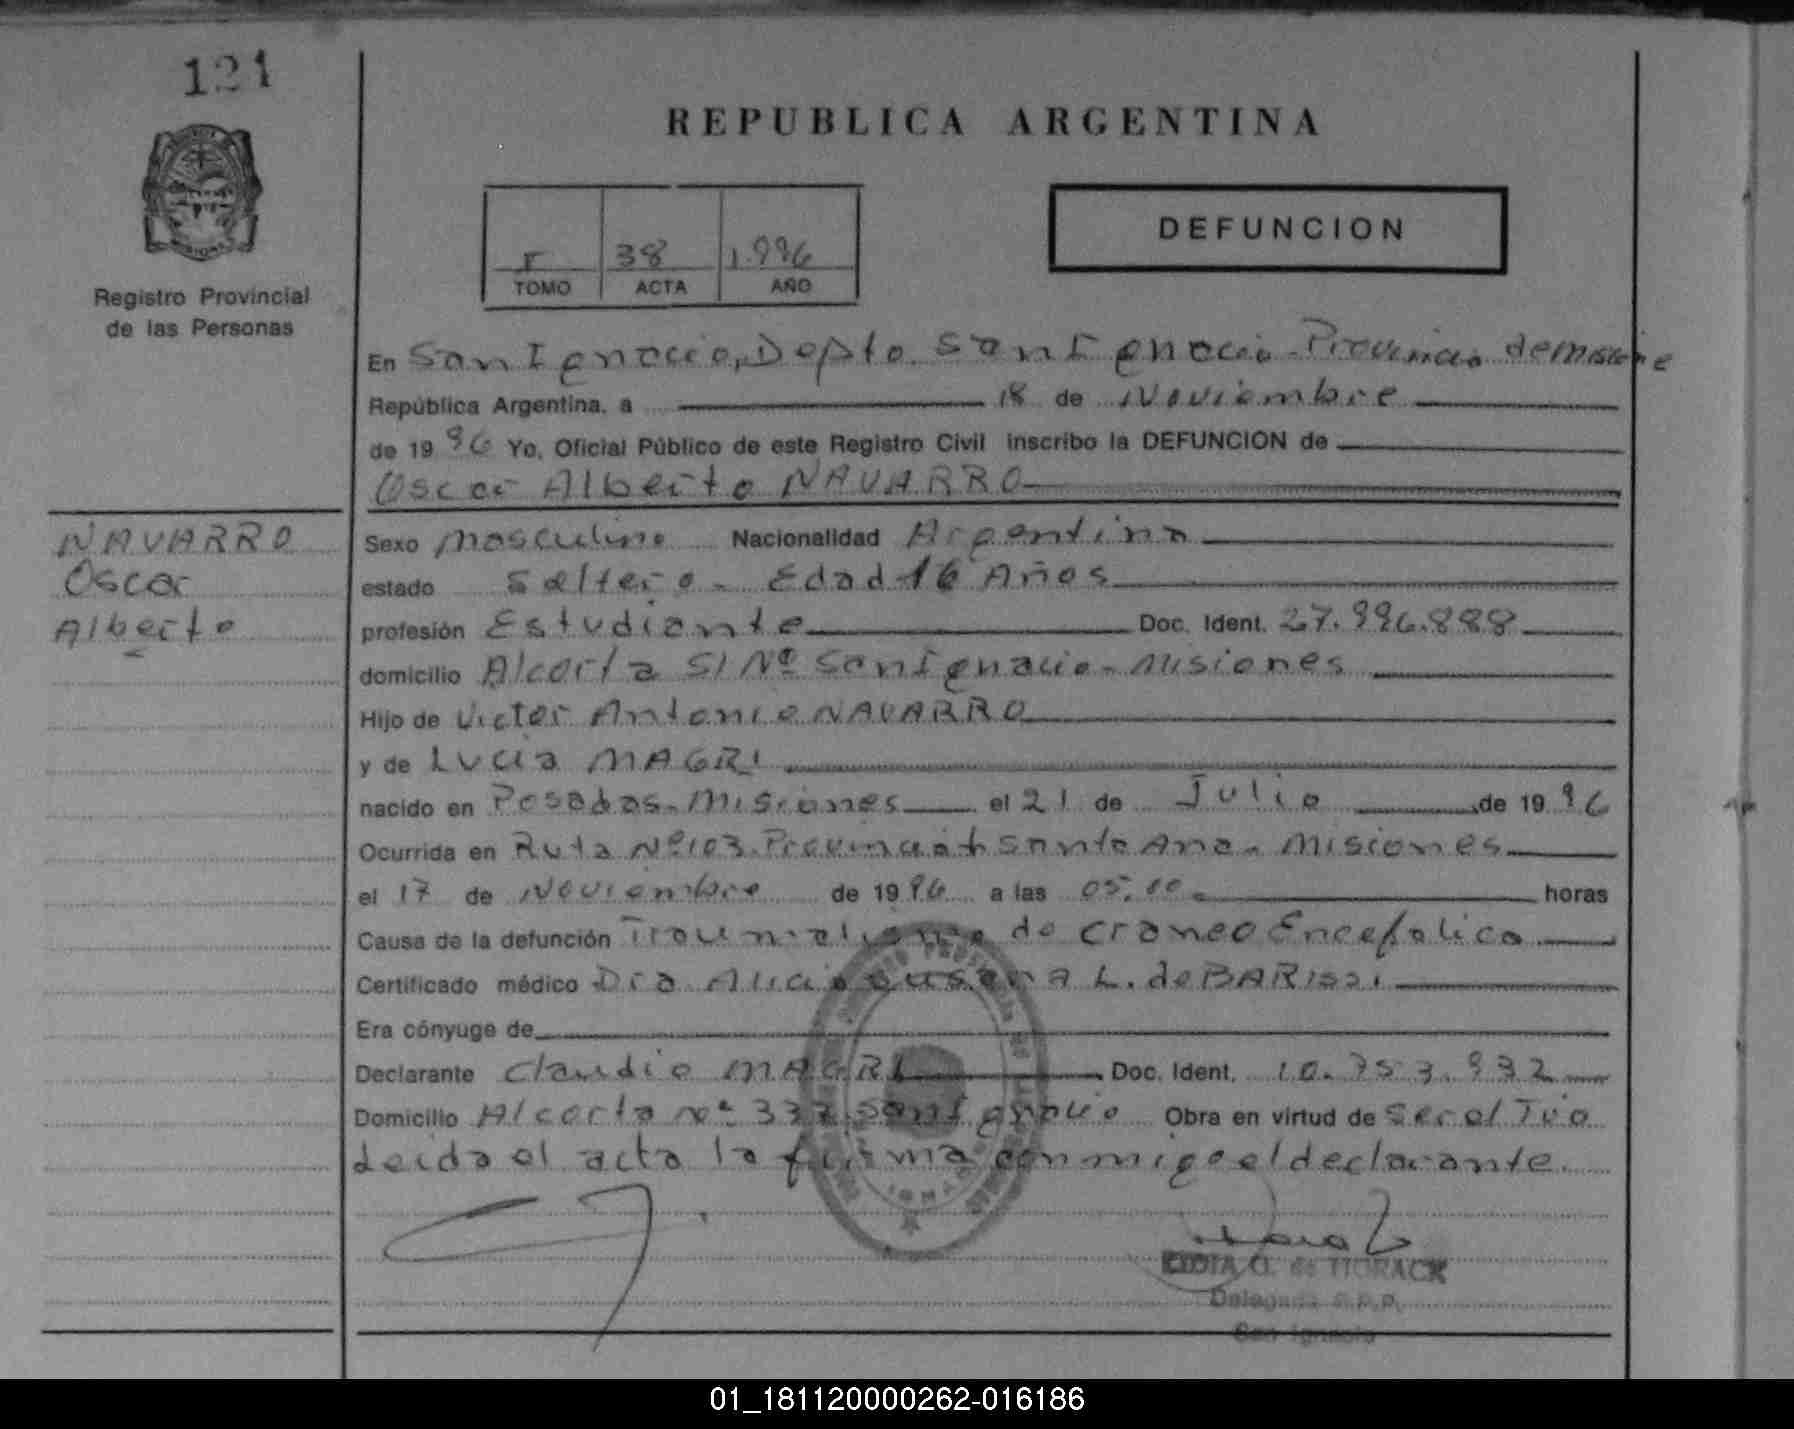 121
REPUBLICA ARGENTINA
DEFUNCION
I 38 1.996
TOMO ACTA AÑO
Registro Provincial
de las Personas
En San Ignacio, Depto. San Ignacio - Provincia de Misione
República Argentina, a 18 de Noviembre
de 19 96 Yo, Oficial Público de este Registro Civil inscribo la DEFUNCION de
Oscar Alberto NAVARRO
NAVARRO
Oscar
Alberto
Sexo Masculino Nacionalidad Argentina
estado Soltero - Edad 16 Años
profesión Estudiante Doc. Ident. 27.996.888
domicilio Alcorta S/Nº San Ignacio - Misiones
Hijo de Victor Antonio NAVARRO
y de Lucia MAGRI
nacido en Posadas - Misiones el 21 de Julio de 19 96
Ocurrida en Ruta Nº 103 Santa Ana - Misiones
el 17 de Noviembre de 19 96 a las 05,00 horas
Causa de la defunción de Craneo Encefalico
Certificado médico Dra Alicia Susana L. de
Era cónyuge de
Declarante Claudio MAGRI Doc. Ident. 10.753.932
Domicilio Alcorta nº 337 San Ignacio Obra en virtud de Ser el Tio
Leida el acta la firma conmigo el declarante.
de HORACK
Delegada R.P.P.
San Ignacio
01_181120000262-016186